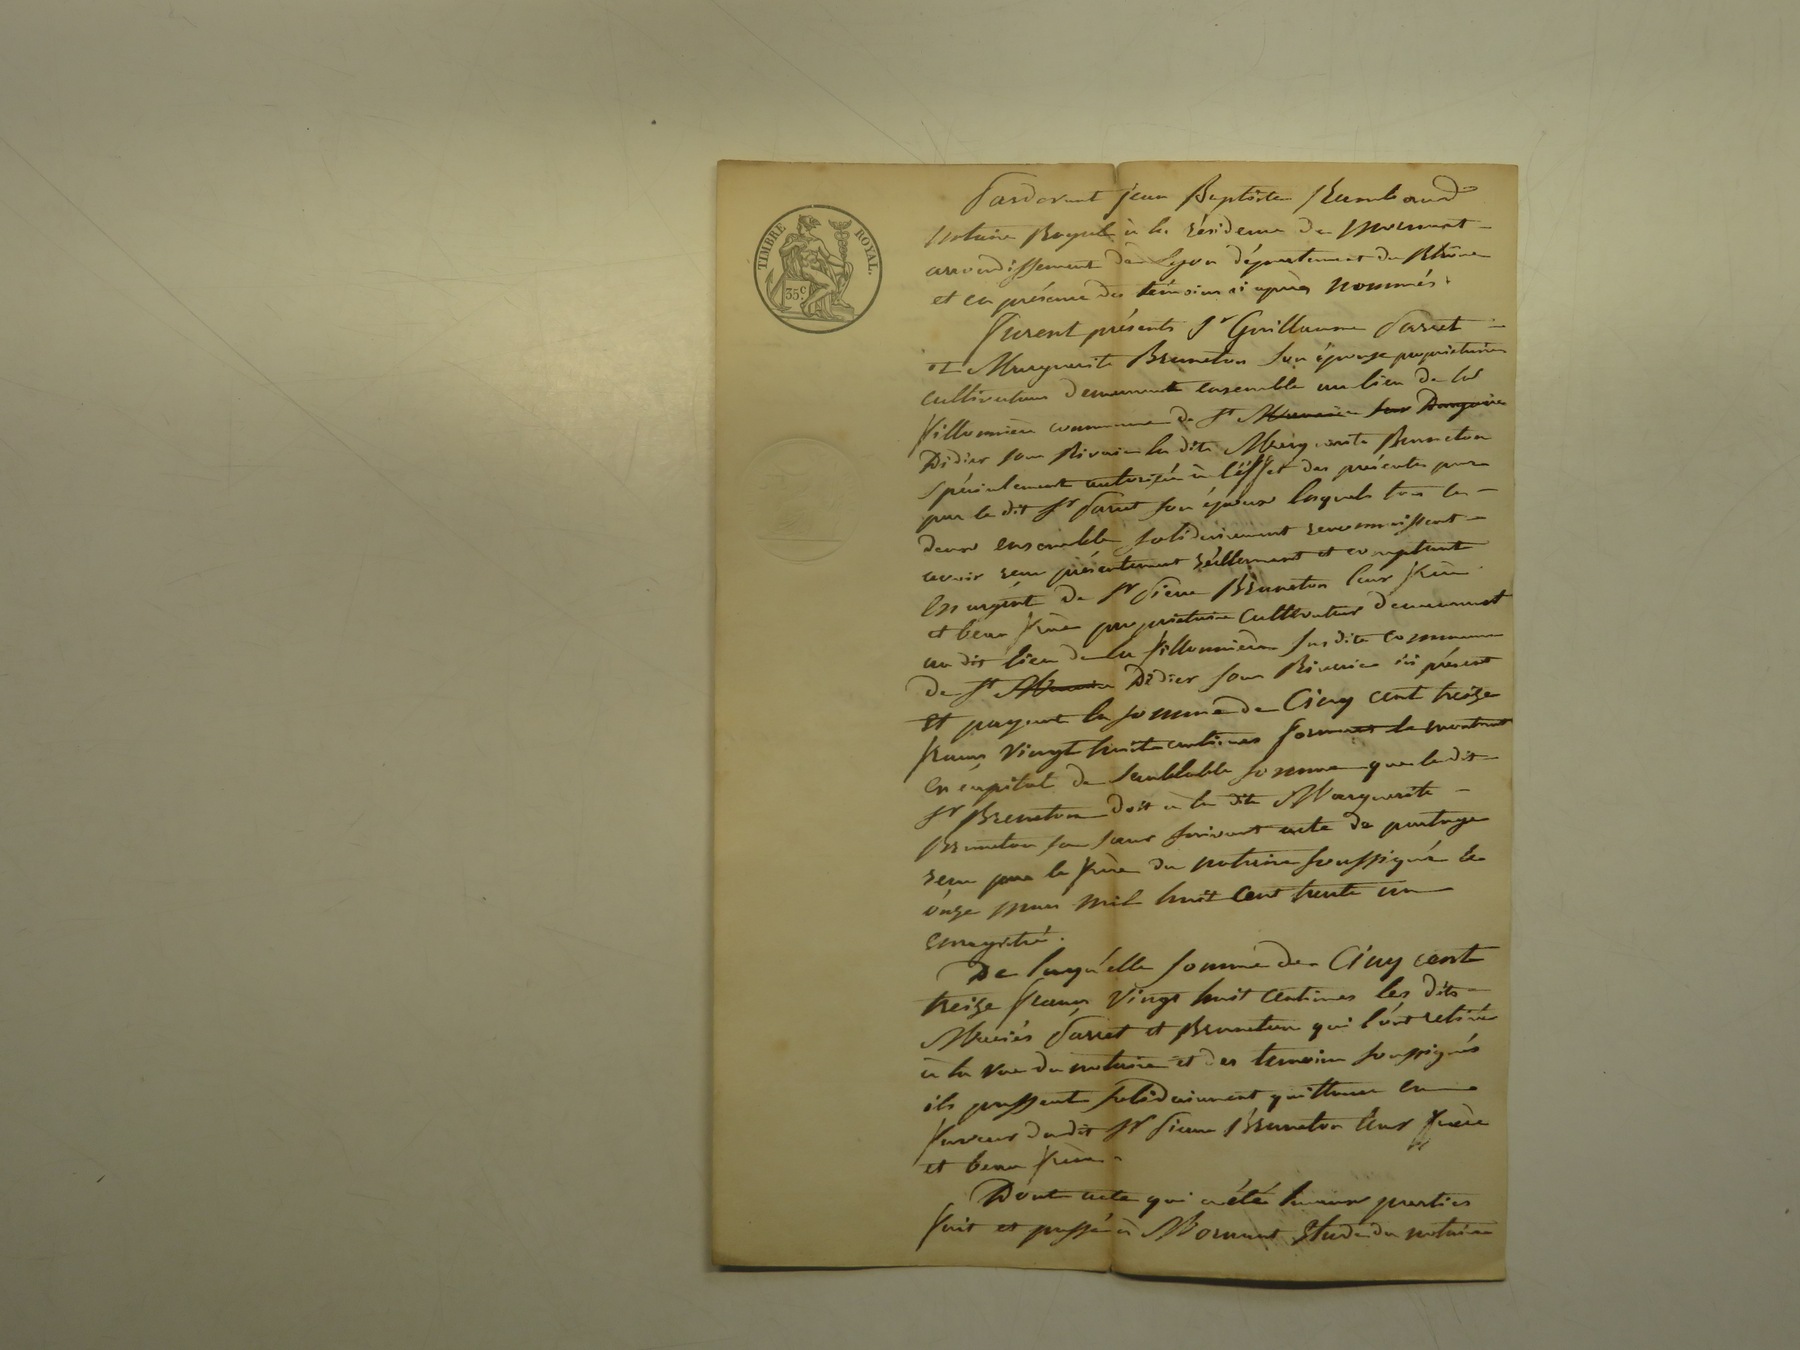 TIMBRE ROYAL.
35 c.
Pardevant jean Baptiste Rambaud
Notaire Royal à la résidence de Mornant
arrondissement de Lyon département du Rhône
et en présence des témoins ci après nommés.
Furent présents Sr Guillaume Parret
et Marguerite Bruneton son épouse propriétaires
cultivateurs demeurants ensemble au lieu de la
fillonnière commune de St Maurice sur Dargoire
Didier sous Riverie la dite Marguerite Bruneton
spécialement autorisée à l'éffet des présentes par
par le dit Sr Parret son époux lesquels tous les
deux ensemble solidairement reconnaissent
avoir reçu présentement réellement et comptant
En argent de Sr Pierre Bruneton leur frère
et beau frère propriétaire cultivateur demeurant
au dit lieu de la fillonnière susdite commune
de St Maurice Didier sous Riverie ici présent
et payant la somme de Cinq cent treize
francs vingt huit centimes formant le montant
en capital de semblable somme que le dit
Sr Bruneton doit à la dite Marguerite
Bruneton sa sœur suivant acte de partage
reçu par le frère du notaire soussigné le
onze mars mil huit cent trente un
enregistré.
De laqu'elle somme de Cinq cent
treize francs vingt huit centimes les dits
Mariés Parret et Bruneton qui l'ont retirée
à la vue du notaire et des temoins soussignés
ils passent solidairement quittance en
faveur du dit Sr Pierre Bruneton leur frère
et beau frère.
Dont acte qui a été lu aux parties
fait et passé à Mornant Etude du notaire